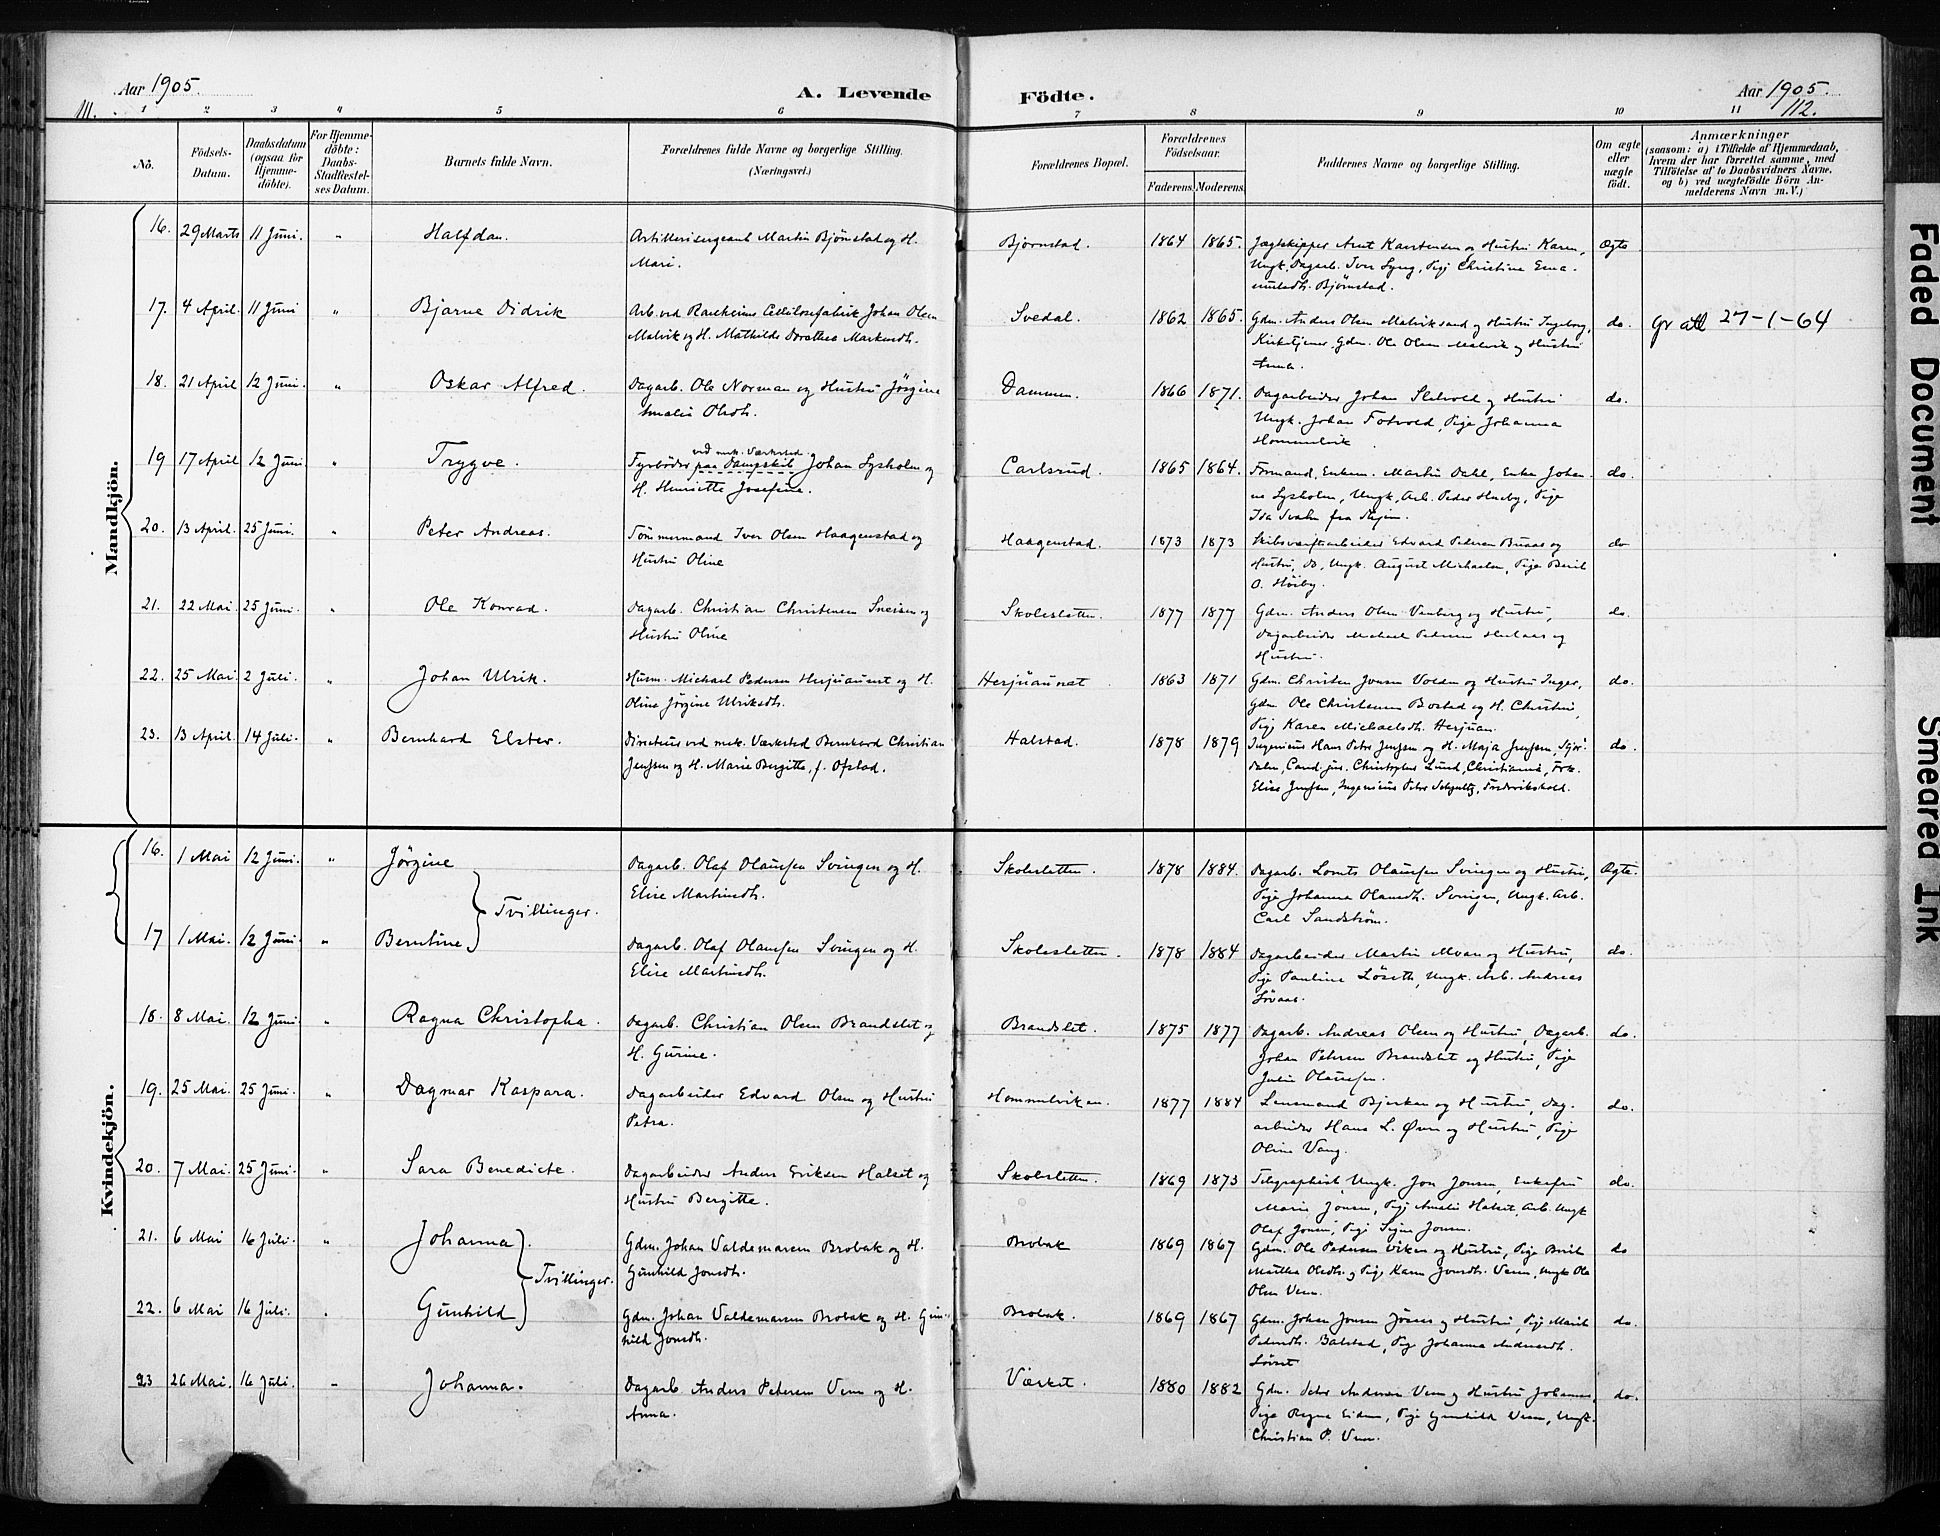 Aar 1905.
A. Levende Födte.
Aar 1905.
111.
112.
1 2 3 4 5 6 7 8 9 10 11
No.
Födsels-Datum.
Daabsdatum (ogsaa for Hjemme-döbte).
For Hjemme-döbte: Daabs-Stadfæstel-ses Datum.
Barnets fulde Navn.
Forældrenes fulde Navne og borgerlige Stilling. (Næringsvei.)
Forældrenes Bopæl.
Forældrenes Födselsaar.
Faderens. Moderens.
Faddernes Navne og borgerlige Stilling.
Om ægte eller uægte födt.
Anmærkninger
(saasom: a) i Tilfælde af Hjemmedaab, hvem der har forrettet samme, med Tilföielse af to Daabsvidners Navne, og b) ved uægtefödte Börn An-melderens Navn m. V.)
Mandkjön.
16. 29 Marts 11 Juni. " Halfdan. Artillerisergeant Martin Bjørnstad og H. Bjørnstad. 1864 1865. Jægtskipper Arnt Karstensen og Hustru Karen, Ægte
Mari. Ungk. Dagarb. Iver Lyng, Pige Christine
Bjørnstad.
17. 4 April. 11 Juni " Bjarne Didrik Arb. ved Ranheims Cellulosefabrik Johan Olsen Svedal. 1862 1865. Gdm. Anders Olsen Malviksand og Hustru Ingeborg, do. 27-1-64
Malvik og H. Mathilde Dorothea Markusdtr. Kirketjener, Gdm. Ole Olsen Malvik og Hustru
Anna.
18. 21 April 12 Juni. " Oskar Alfred. Dagarb. Ole Norman og Hustru Jörgine Dammen. 1866 1871. Dagarbeider Johan og Hustru do.
Amalie Olsdtr. Ungk. Johan Fotvold, Pige Johanna
Hommelvik
19 17 April 12 Juni " Trygve. ved mek. Værksted.
Fyrböder paa Dampskib Johan Lysholm og Carlsrud. 1865 1864. Formand, Enkem. Martin Dahl, Enke Johan- do.
H. Henriette Josefine. ne Lysholm, Ungk. Arb. Peder Huseby, Pige
Ida Svahn fra
20. 13 April. 25 Juni. " Peter Andreas. Tömmermand Iver Olsen Haagenstad og Haagenstad. 1873 1873 Skibsværftsarbeider Edvard Pedersen Buaas og do
Hustru Oline Hustru, do, Ungk. August Michaelsen, Pige Berit
O. Höiby.
21. 22 Mai. 25 Juni. " Ole Konrad. Dagarb. Christian Christensen Sneisen og Skolesletten. 1877 1877 Gdm. Anders Olsen Venberg og Hustru, do.
Hustru Oline Dagarbeider Michael Pedersen og
Hustru.
22. 25 Mai 2 Juli. " Johan Ulrik. Husm. Michael Pedersen Herjuaunet og H. Herjuaunet 1863 1871 Gdm. Christen Jonsen Volden og Hustru Inger, do.
Oline Jörgine Ulriksdtr. Gdm. Ole Christensen Bostad og H. Christine,
Pige Karen Michaelsdtr. Herjuan.
23. 13 April. 14 Juli. " Bernhard Elster. Directeur ved mek. Værksted Bernhard Christian Halstad. 1878 1879 Ingenieur Hans Peter Jenssen og H. Maja Jenssen, Stjör- do.
Jenssen og H. Marie Bergitte, f. Ofstad. dalen, Cand. jur. Christopher Lund, Christiania, Frk.
Elise Jenssen, Ingenieur Peter Schjultz, Frederikshald.
Kvindekjön.
16. 1 Mai 12 Juni. " Jørgine Dagarb. Olaf Olaussen Svingen og H. Skolesletten. 1878 1884. Dagarb. Lorents Olaussen Svingen og Hustru, Ægte.
Elise Martinsdtr. Pige Johanna Olausdtr. Svingen, Ungk. Arb.
Tvillinger. Carl Sandström.
17 1 Mai. 12 Juni. " Berntine Dagarb. Olaf Olaussen Svingen og H. Skolesletten. 1878 1884 Dagarbeider Martin Moan og Hustru, do.
Elise Martinsdtr. Pige Pauline Löseth, Ungk. Arb. Andreas
18. 8 Mai. 12 Juni " Ragna Christopha. Dagarb. Christian Olsen Brandslet og Brandslet. 1875 1877 Dagarb. Andreas Olsen og Hustru, Dagarb. do.
H. Gurine. Johan Petersen Brandslet og Hustru, Pige
Julie Olaussen.
19. 25 Mai. 25 Juni. " Dagmar Kaspara. Dagarbeider Edvard Olsen og Hustru Hommelviken. 1877 1884 Lensmand Bjerkan og Hustru, Dag- do.
Petra. arbeider Hans L. Øvre og Hustru, Pige
Oline Vang.
20. 7 Mai. 25 Juni. " Sara Benedicte. Dagarbeider Anders Eriksen Halset og Skolesletten. 1869 1873 Telegraphist, Ungk. Jon Jonsen, Enkefru do.
Hustru Bergitte. Marie Jonsen, Pige Amalie Halset, Arb. Ungk
Olaf Jonsen, Pige Signe Jonsen.
21. 6 Mai 16 Juli. " Johanna. Gdm. Johan Valdemarsen Brobak og H. Brobak 1869 1867 Gdm. Ole Pedersen Viken og Hustru, Pige Berit do
Gunhild Jonsdtr. Martha Olsdtr. og Pige Karen Jonsdtr. Venn, Ungk Ole
Tvillinger. Olsen Venn.
22. 6 Mai 16 Juli. " Gunhild Gdm. Johan Valdemarsen Brobak og H. Gun- Brobak. 1869 1867 Gdm. Johan Jonsen og Hustru, Pige Marit do.
hild Jonsdtr. Pedersdtr. Balstad, Pige Johanna Andreasdtr.
23 26 Mai. 16 Juli. " Johanna. Dagarb Anders Petersen Venn og H. Værket. 1880 1882 Gdm. Peter Andersen Venn og Hustru Johanna, do.
Anna. Pige Ragna Eidem, Pige Gunhild Venn, Ungk.
Christian P. Venn.
Faded Document
Smeared Ink